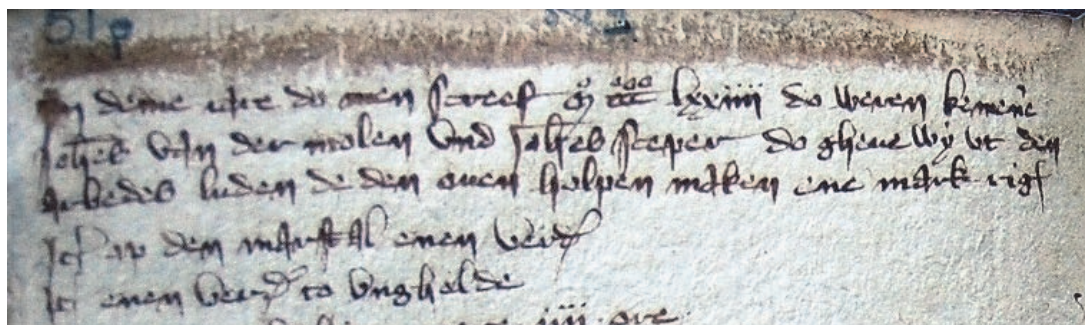 51p
In deme iare do men screef m ccc lxxiiii do weren kemene
Johes van der molen vnd Johes sceper do gheue wy vt den
arbedes luden de den ouen holpen maken ene mark rig
It up den marstal enen verd
It enen verd to vnghelde
iiii ore